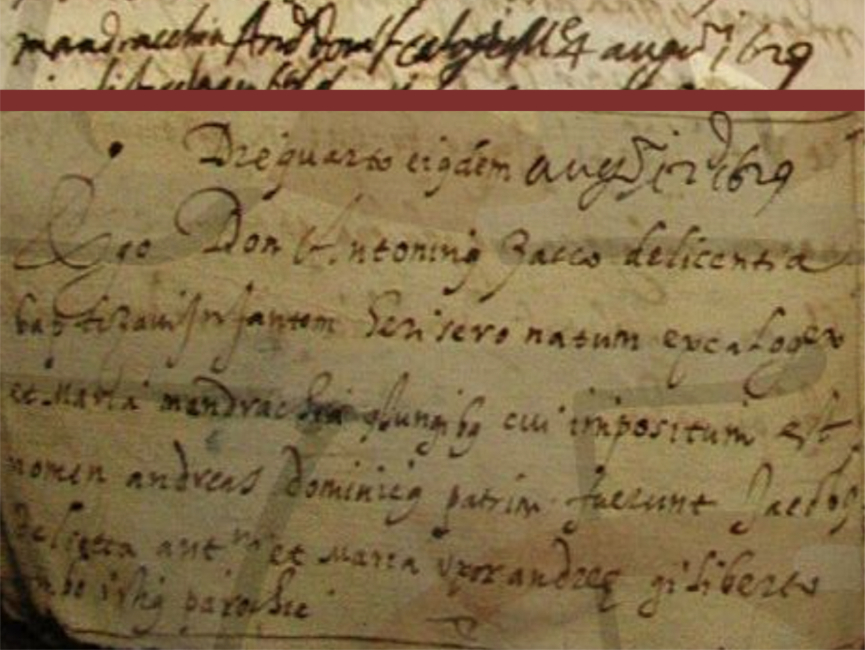 mandracchia And dom f calog 4 augti 1629
Die quarto eigdem augti 12 Jnd 1629
Ego Don Antoninq Zacco de licentia
baptizavi Infantem heri sero natum ex calogero
et Maria mandrachia Cjungibq cui impositum est
nomen andreas dominicq patrini fuerunt Jacobq
antni et Maria Uxor andreę giliberto
ambo istiq parochie